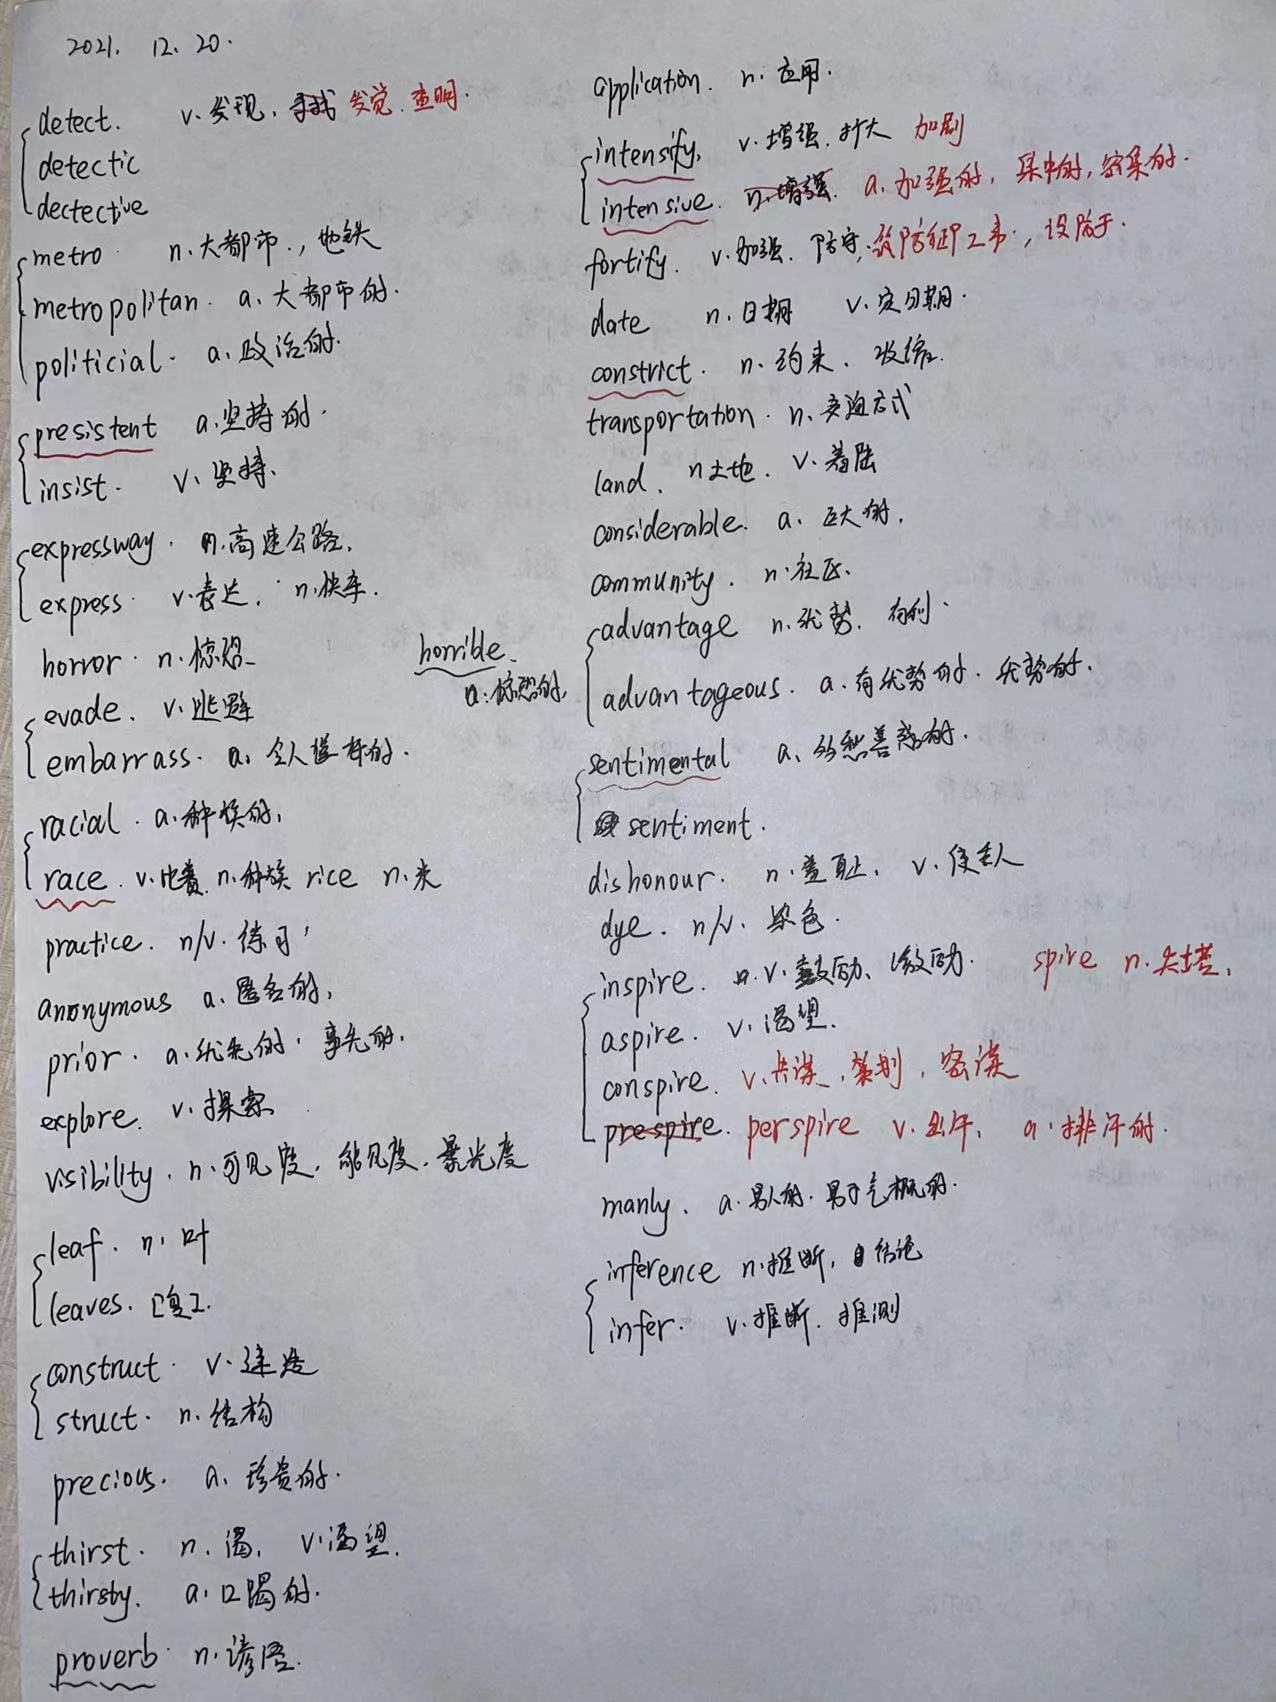 2021. 12. 20.
detect. v. 发现, 发觉. 查明.
detectic
dectective
metro n. 大都市, 地铁
metropolitan. a. 大都市的.
politicial. a. 政治的.
presistent a. 坚持的.
insist. v. 坚持.
expressway. n. 高速公路.
express v. 表达. n. 快车.
horror. n. 惊恐
horrible.
a. 惊恐的,
evade. v. 逃避
embarrass. a. 令人尴尬的.
racial. a. 种族的,
race. v. 比赛. n. 种族 rice n. 米
practice. n/v. 练习
anonymous a. 匿名的,
prior. a. 优先的. 事先的.
explore. v. 探索
visibility. n. 可见度, 能见度. 暴光度
leaf. n. 叶
leaves. [复].
construct. v. 建造
struct. n. 结构
precious. a. 珍贵的.
thirst. n. 渴. v. 渴望.
thirsty. a. 口渴的.
proverb. n. 谚语.
application. n. 应用.
intensify. v. 增强. 扩大 加剧
intensive. n. 增强 a. 加强的, 集中的, 密集的.
fortify. v. 加强. 防守, 筑防御工事, 设防于.
date n. 日期 v. 定日期.
constrict. n. 约束. 收缩.
transportation. n. 交通方式
land. n 土地. v. 着陆
considerable. a. 巨大的.
community. n. 社区.
advantage n. 优势. 有利.
advantageous. a. 有优势的. 优势的.
sentimental a. 多愁善感的.
sentiment.
dishonour. n. 羞耻. v. 使丢人
dye. n/v. 染色.
inspire. v. 鼓励、激励. spire n. 尖塔,
aspire. v. 渴望.
conspire. v. 共谋, 策划, 密谋
prespire. perspire v. 出汗, a. 排汗的.
manly. a. 男人的. 男子气概的.
inference n. 推断, 结论
infer. v. 推断. 推测